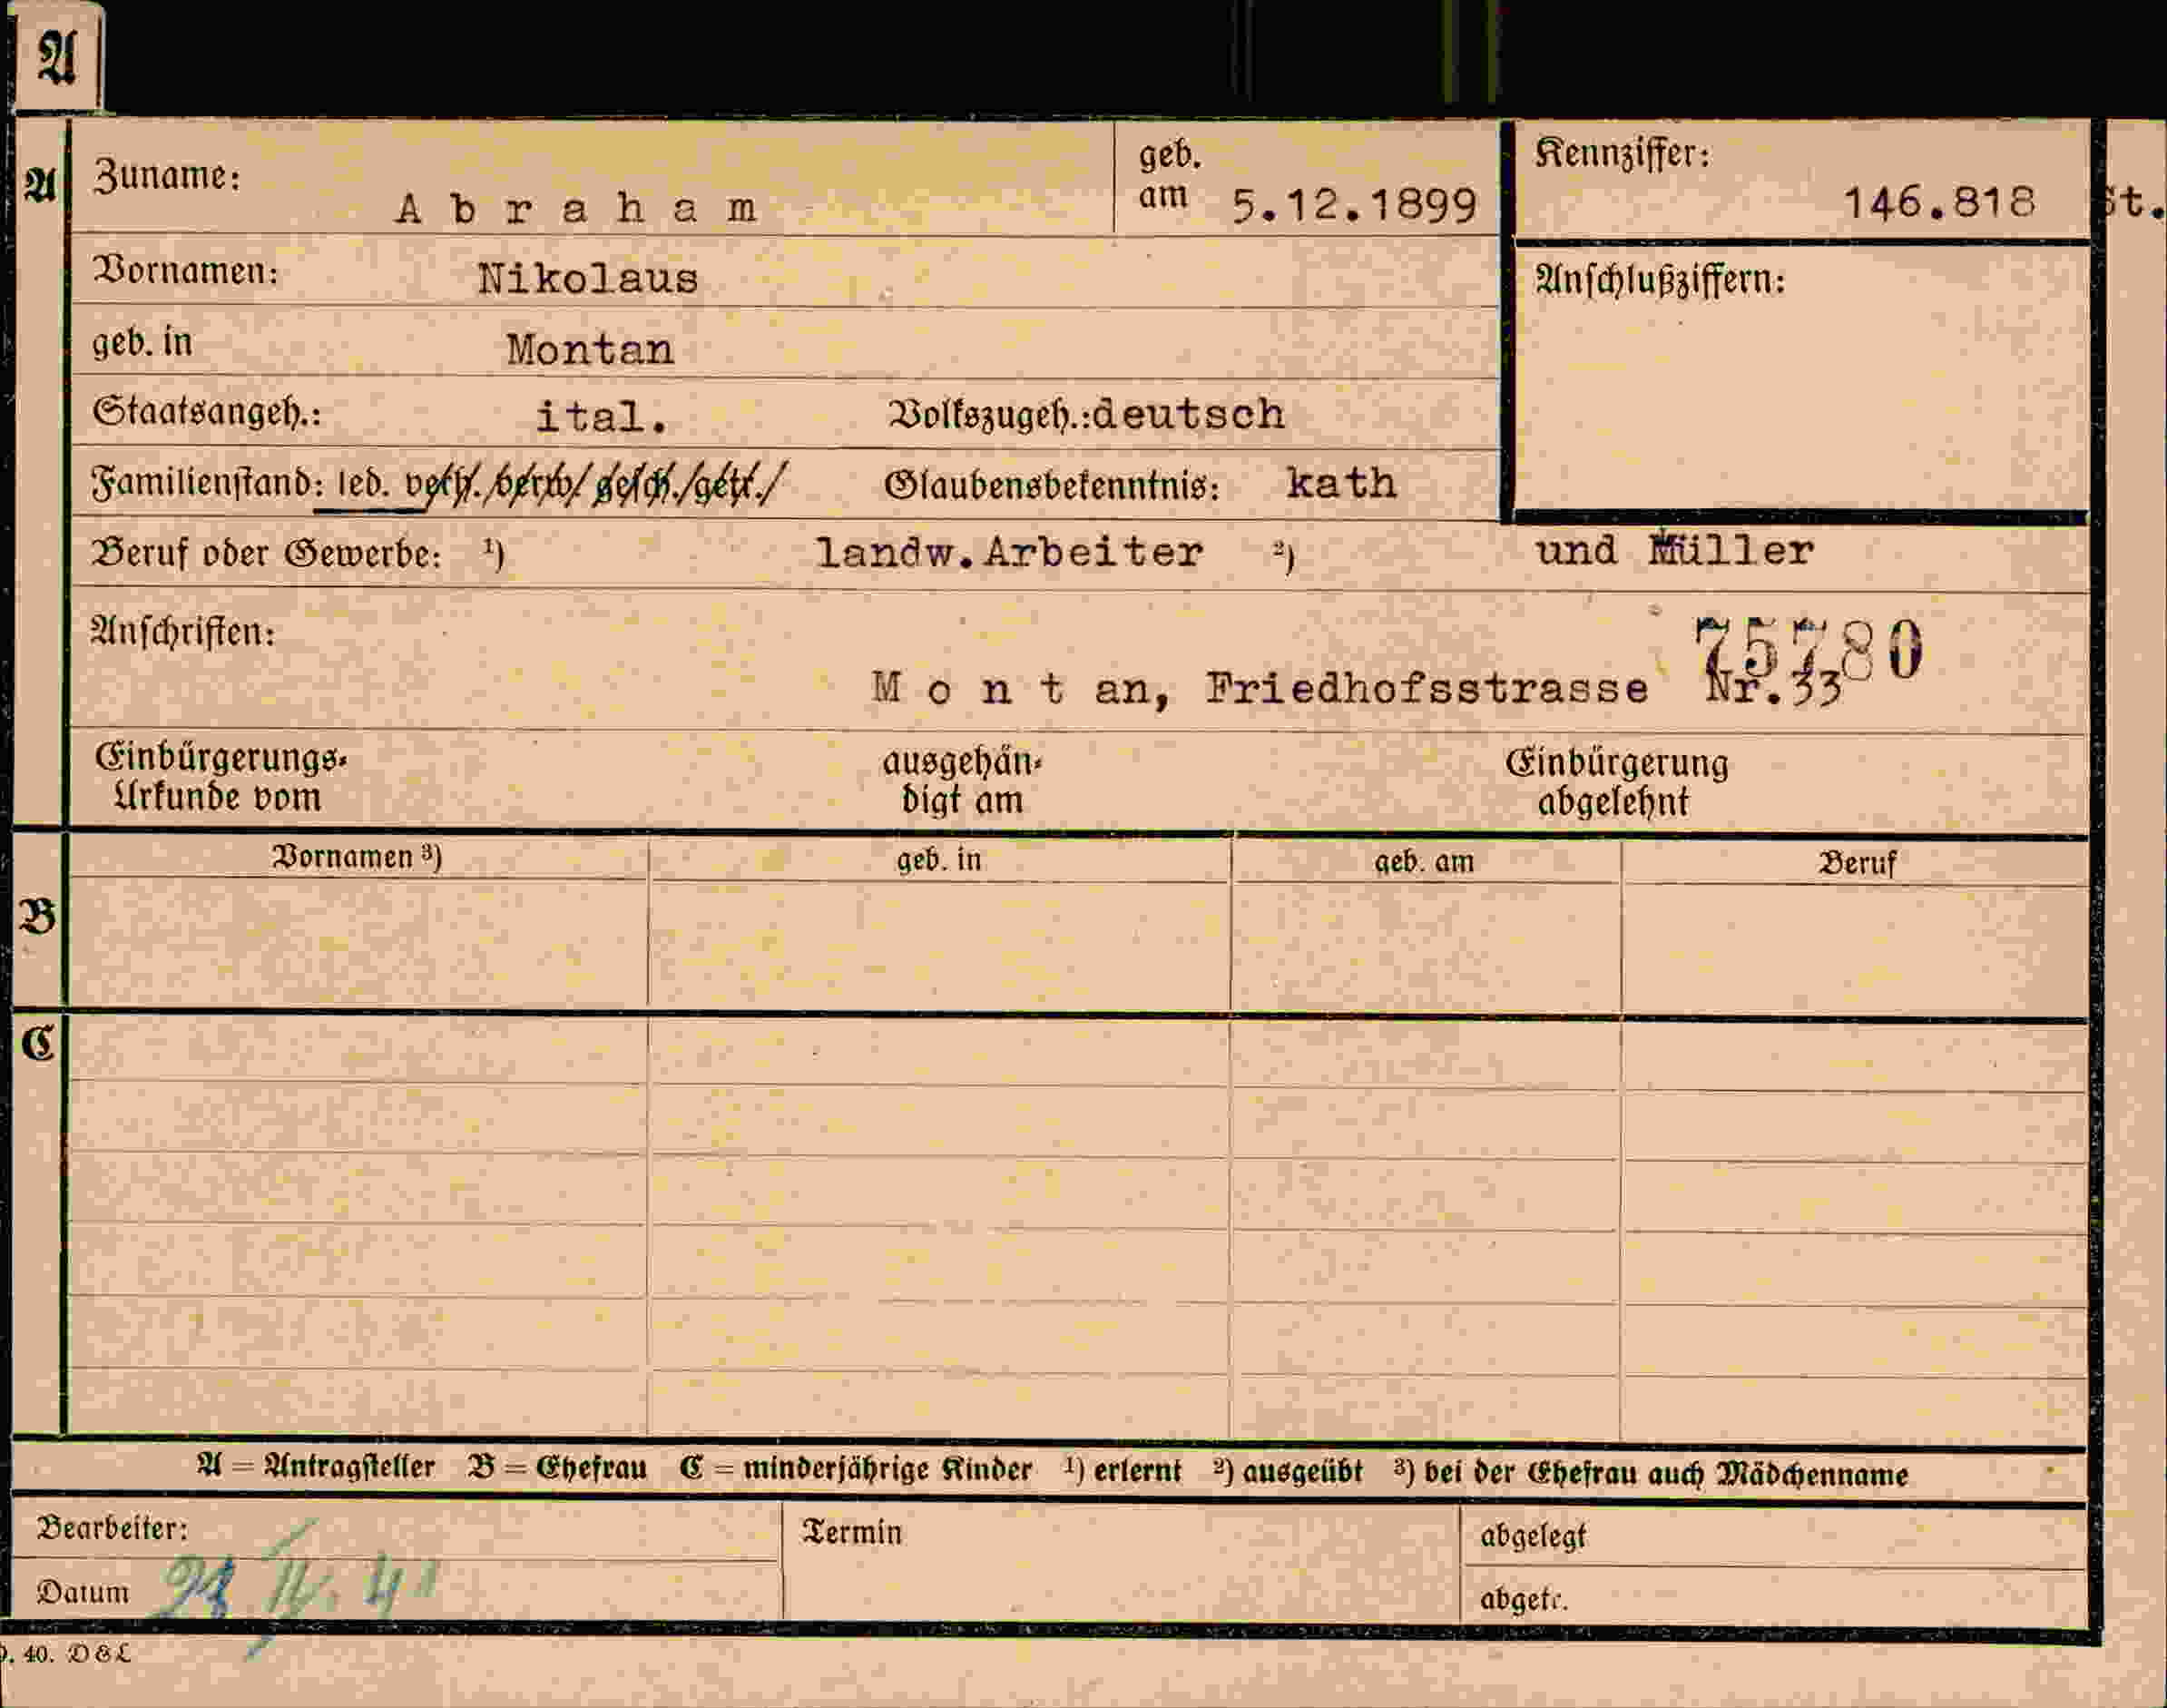 A
A Zuname: A b r a h a m geb. am 5.12.1899 Kennziffer: 146.818 St.
Vornamen: Nikolaus Anschlußziffern:
geb. in Montan
Staatsangeh.: ital. Volkszugeh.: deutsch
Familienstand: led. verh./verw/ gesch./getr./ Glaubensbekenntnis: kath
Beruf oder Gewerbe: 1) landw.Arbeiter 2) und Müller
Anschriften: 75780
M o n t an, Friedhofsstrasse Nr.33
Einbürgerungs- ausgehän- Einbürgerung
Urkunde vom digt am abgelehnt
Vornamen 3) geb. in geb. am Beruf
B
C
A = Antragsteller B = Ehefrau C = minderjährige Kinder 1) erlernt 2) ausgeübt 3) bei der Ehefrau auch Mädchenname
Bearbeiter: Termin abgelegt
Datum IV. 41 abgetr.
40.